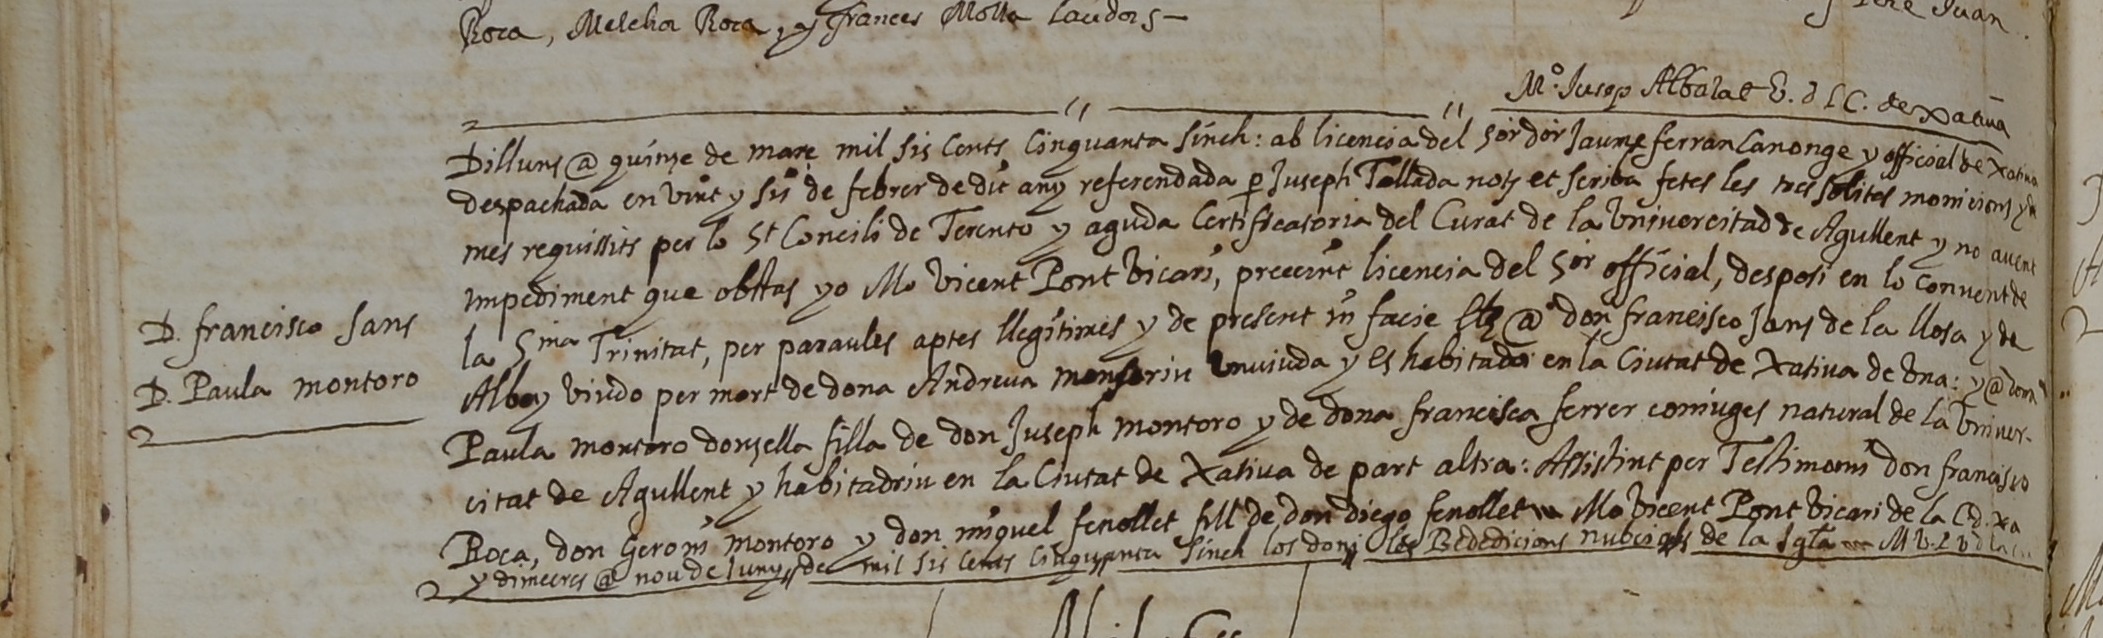 Pere Juan
Roca, Melchor Roca, y frances Molla lauradors
Mº. Jusep Albalat V. d l C. de Xativa
Dilluns @ quinze de mars mil sis cents cinquanta sinch: ab licencia del Sor dor Jaume ferran Canonge y official de Xativa
despachada en vint y sis de febrer de dit any referendada p Juseph Tallada notz et scriba fetes les tres solites monicions y de
mes requissits per lo St Concili de Terento y aguda Certificatoria del Curat de la Univercitad de Agullent y no avent
impediment que obstas yo Mo Vicent Pont Vicari, preceint licencia del Sor official, desposi en lo convent de
D. francisco sans
la Sma Trinitat, per paraules aptes llegitimes y de present in facie @ don francisco sans de la llosa y de
D. Paula montoro
Alboy viudo per mort de dona Andreua monsoriu y es habitador en la Ciutat de Xativa de una: y @ dona
Paula montoro donsella filla de don Juseph montoro y de dona francisca ferrer coniuges natural de la Univer-
citat de Agullent y habitadriu en la Ciutat de Xativa de part altra: Assistint per Testimonis don francisco
Roca, don Geroni montoro y don miquel fenollet fill de don diego fenollet Mo Vicent Pont Vicari de la Cd. Xa
y dimecres @ nou de Juny de mil sis cents cinquanta sinch los doni les Bededicions nubcials de la Sglª